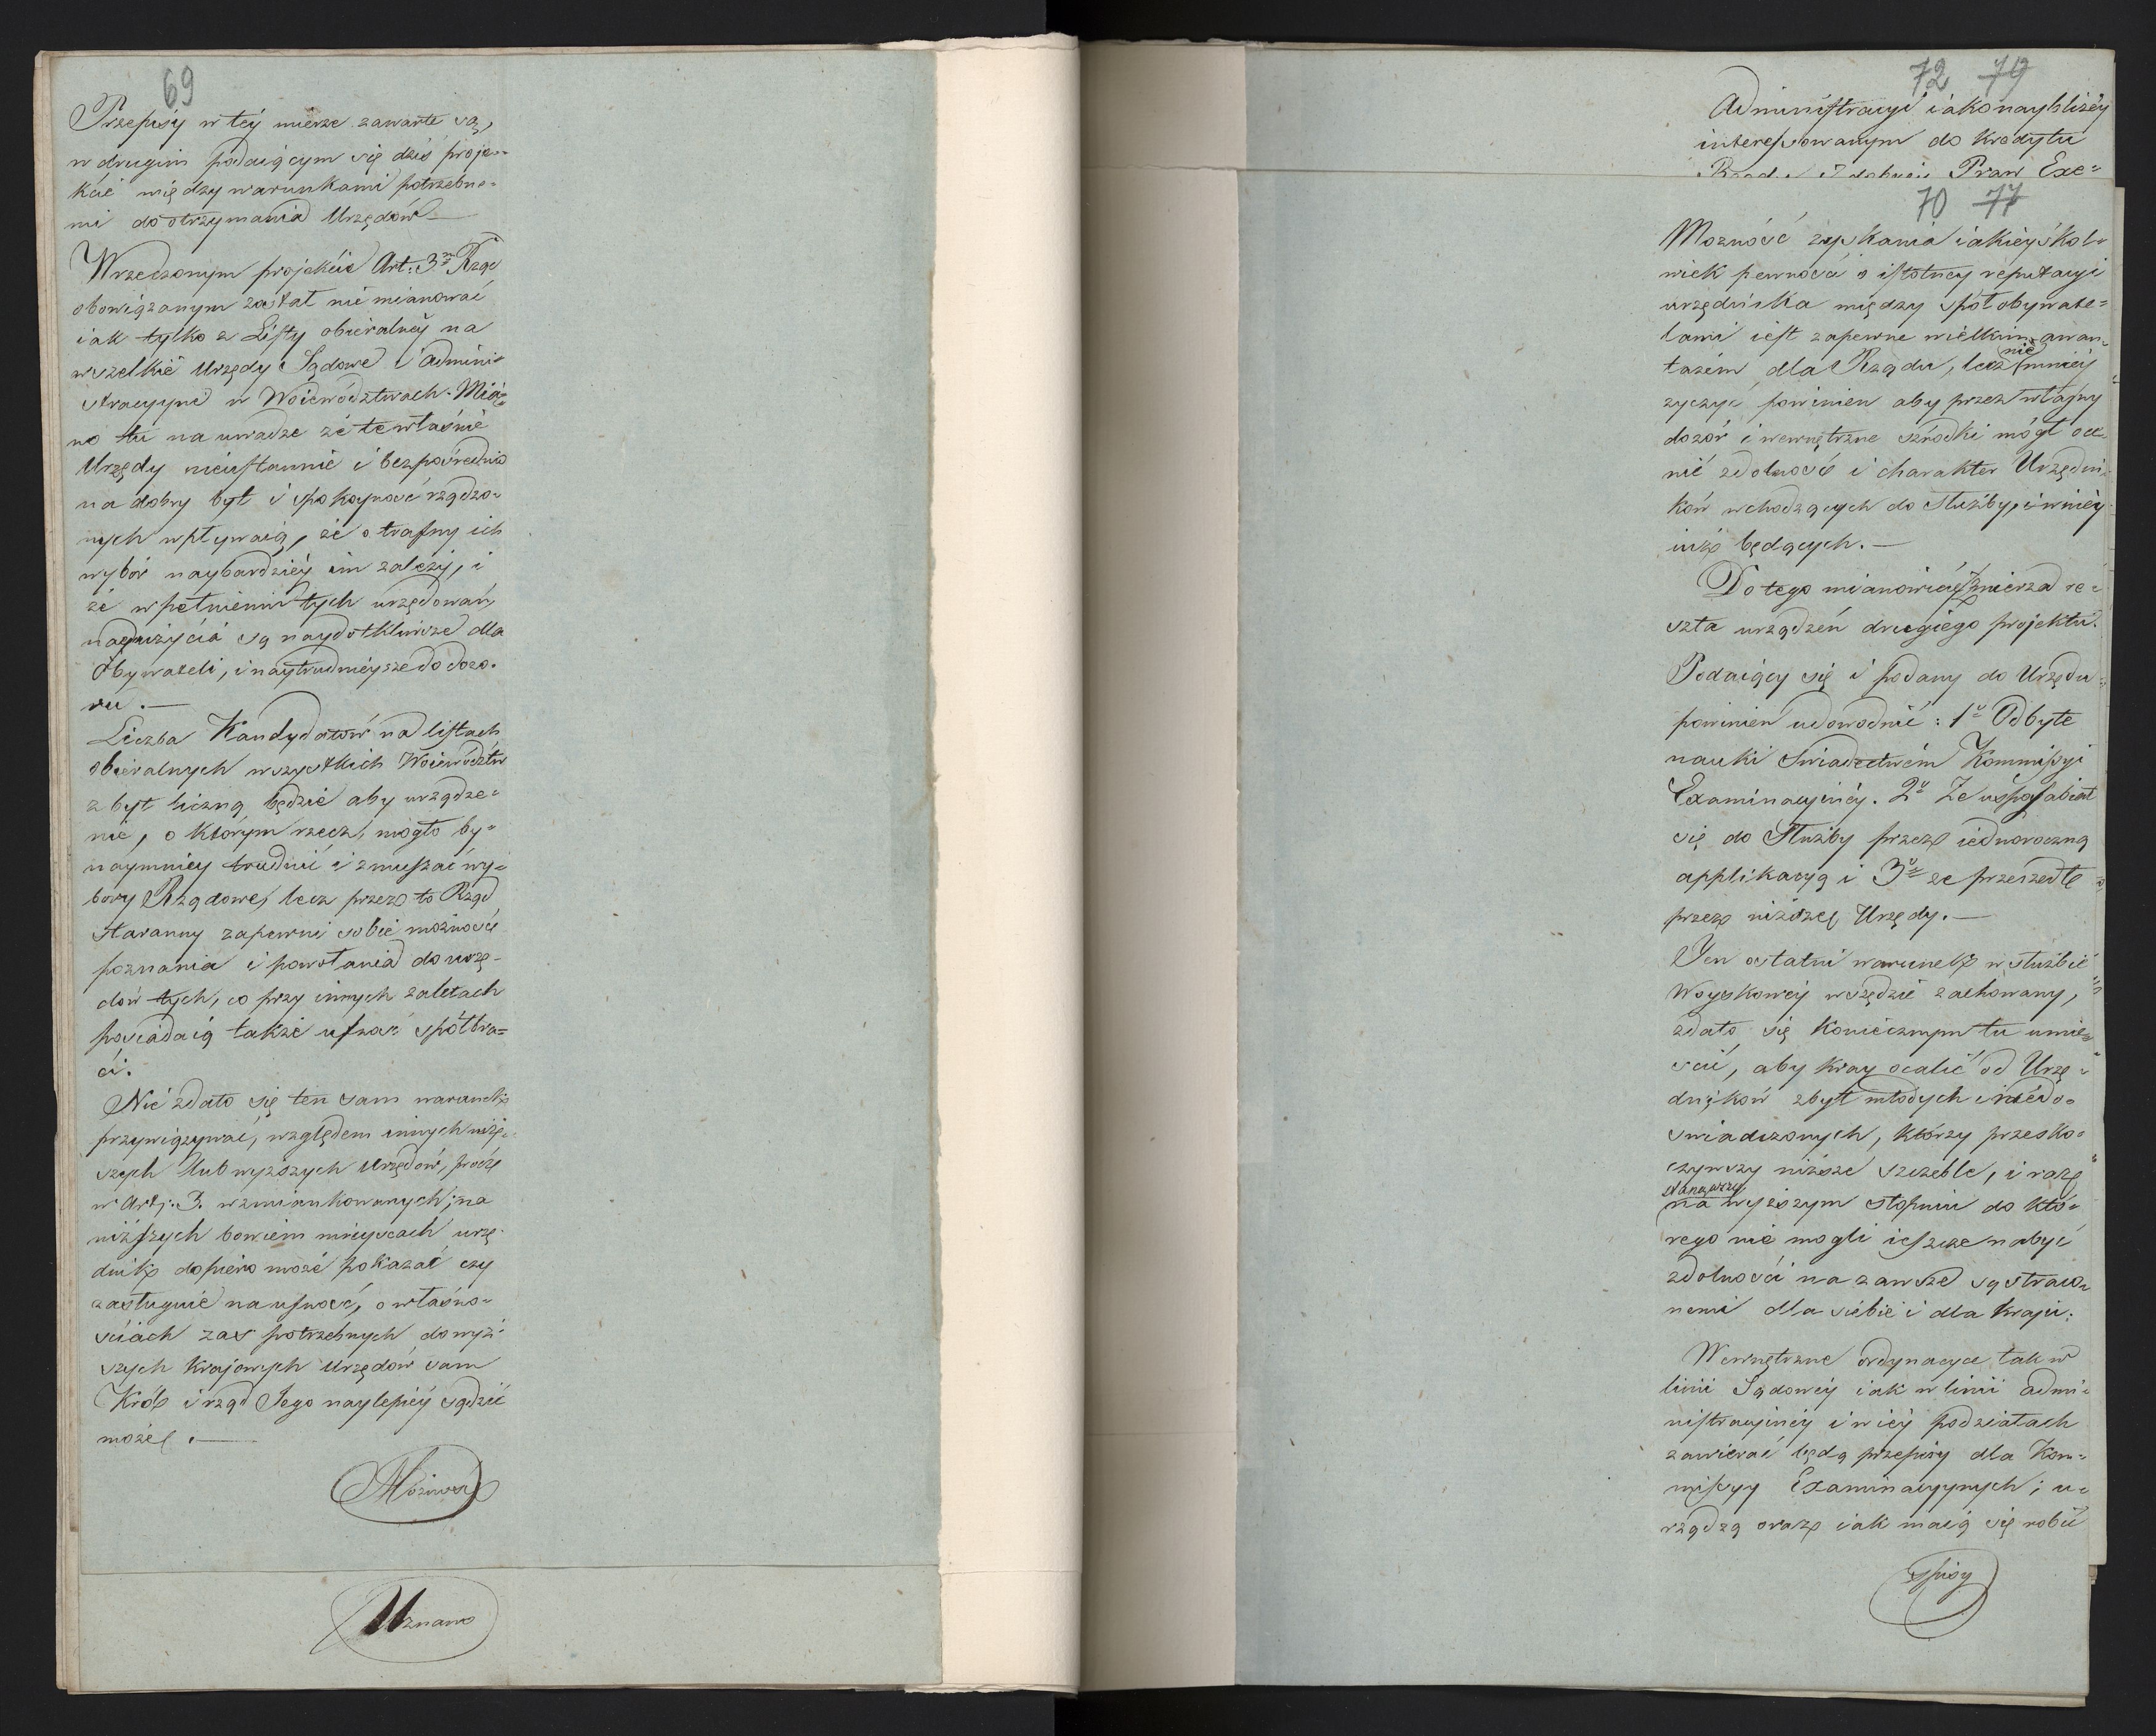 69
Przepisy w tey mierze zawarte są,
w drugim podaiącym się dziś proje-
kcie między warunkami potrzebne-
mi do otrzymania Urzędów —
W rzeczonym projekcie Art: 3m Rząd
obowiązanym został nie mianować
iak tylko z Listy obieralney na
wszelkie Urzędy Sądowe i Admini-
stracyine w Woiewództwach. Mia-
no tu na uwadze że te właśnie
Urzędy nieustannie i bezpośrednio
na dobry byt i spokoyność rządzo-
nych wpływaią, że o trafny ich
wybór naybardziéy im zależy, i
że w pełnieniu tych urzędowań
nadużycia są naydotkliwsze dla
Obywateli, i naytrudnieysze do dozo-
ru. —
Liczba Kandydatów na listach
obieralnych wszystkich Woiewództw
zbyt liczną będzie aby urządze-
nie, o którym rzecz, mogło by-
naymniey trudnić i zmuszać wy-
bory Rządowe, lecz przez to Rząd
staranny zapewni sobie możność
poznania i powołania do urzę-
dów tych, co przy innych zaletach
posiadaią także ufność spółbra-
ci.
Nie zdało się ten sam warunek
przywiązywać, względem innych niż-
szych lub wyższych Urzędów, prócz
w Arty. 3. wzmiankowanych; na
niższych bowiem mieyscach urzę-
dnik dopiero może pokazać czy
zasługuie na ufność, o własno-
ściach zaś potrzebnych do wyż-
szych krajowych Urzędów sam
Król i rząd Jego naylepiéy sądzić
może. —
Możność
Uznano
72 79
Administracyi iako naybliżéy
interessowanym do kredytu
Rządu i dobréy Praw Exe-
70 77
Możność zyskania iakieyśkol-
wiek pewności o istotney reputacyi
urzędnika między spółobywate-
lami iest zapewne wielkim awan-
tażem dla Rządu, lecz nie mniéy
życzyć powinien aby przez własny
dozór i wewnętrzne śrzodki mógł oce-
nić zdolność i charakter Urzędni-
ków wchodzących do służby, i w niéy
iuż będących. —
Do tego mianowicie zmierza re-
szta urządzeń drugiego projektu.
Podaiący się i podany do Urzędu
powinien udowodnić: 1o Odbyte
nauki Świadectwem Kommissyi
Examinacyinéy. 2o Że usposabiał
się do Służby przez iednoroczną
applikacyą i 3o że przeszedł
przez niższe Urzędy. —
Ten ostatni warunek w służbie
Woyskowéy wszędzie zachowany,
zdało się koniecznym tu umie-
ścić, aby kray ocalić od Urzę-
dników zbyt młodych i niedo-
świadczonych, którzy przesko-
czywszy niższe szczeble, i raz
stanąwszy
na wyższym stopniu do któ-
rego nie mogli ieszcze nabyć
zdolności na zawsze są straco-
nemi dla siebie i dla kraju.
Wewnętrzne ordynacye tak w
linii Sądowéy iak w linii admi-
nistracyinéy i w iéy podziałach
zawierać będą przepisy dla Kom-
missyy Examinacyynych; u-
rządzą oraz iak maią się robić
spisy